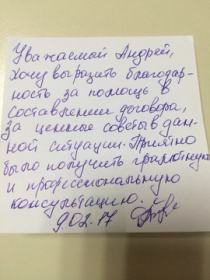 Уважаемый Андрей,
хочу выразить благодар-
ность за помощь в
составлении договора,
за ценные советы в дан-
ной ситуации. Приятно
было получить грамотную
и профессиональную
консультацию.
902.17